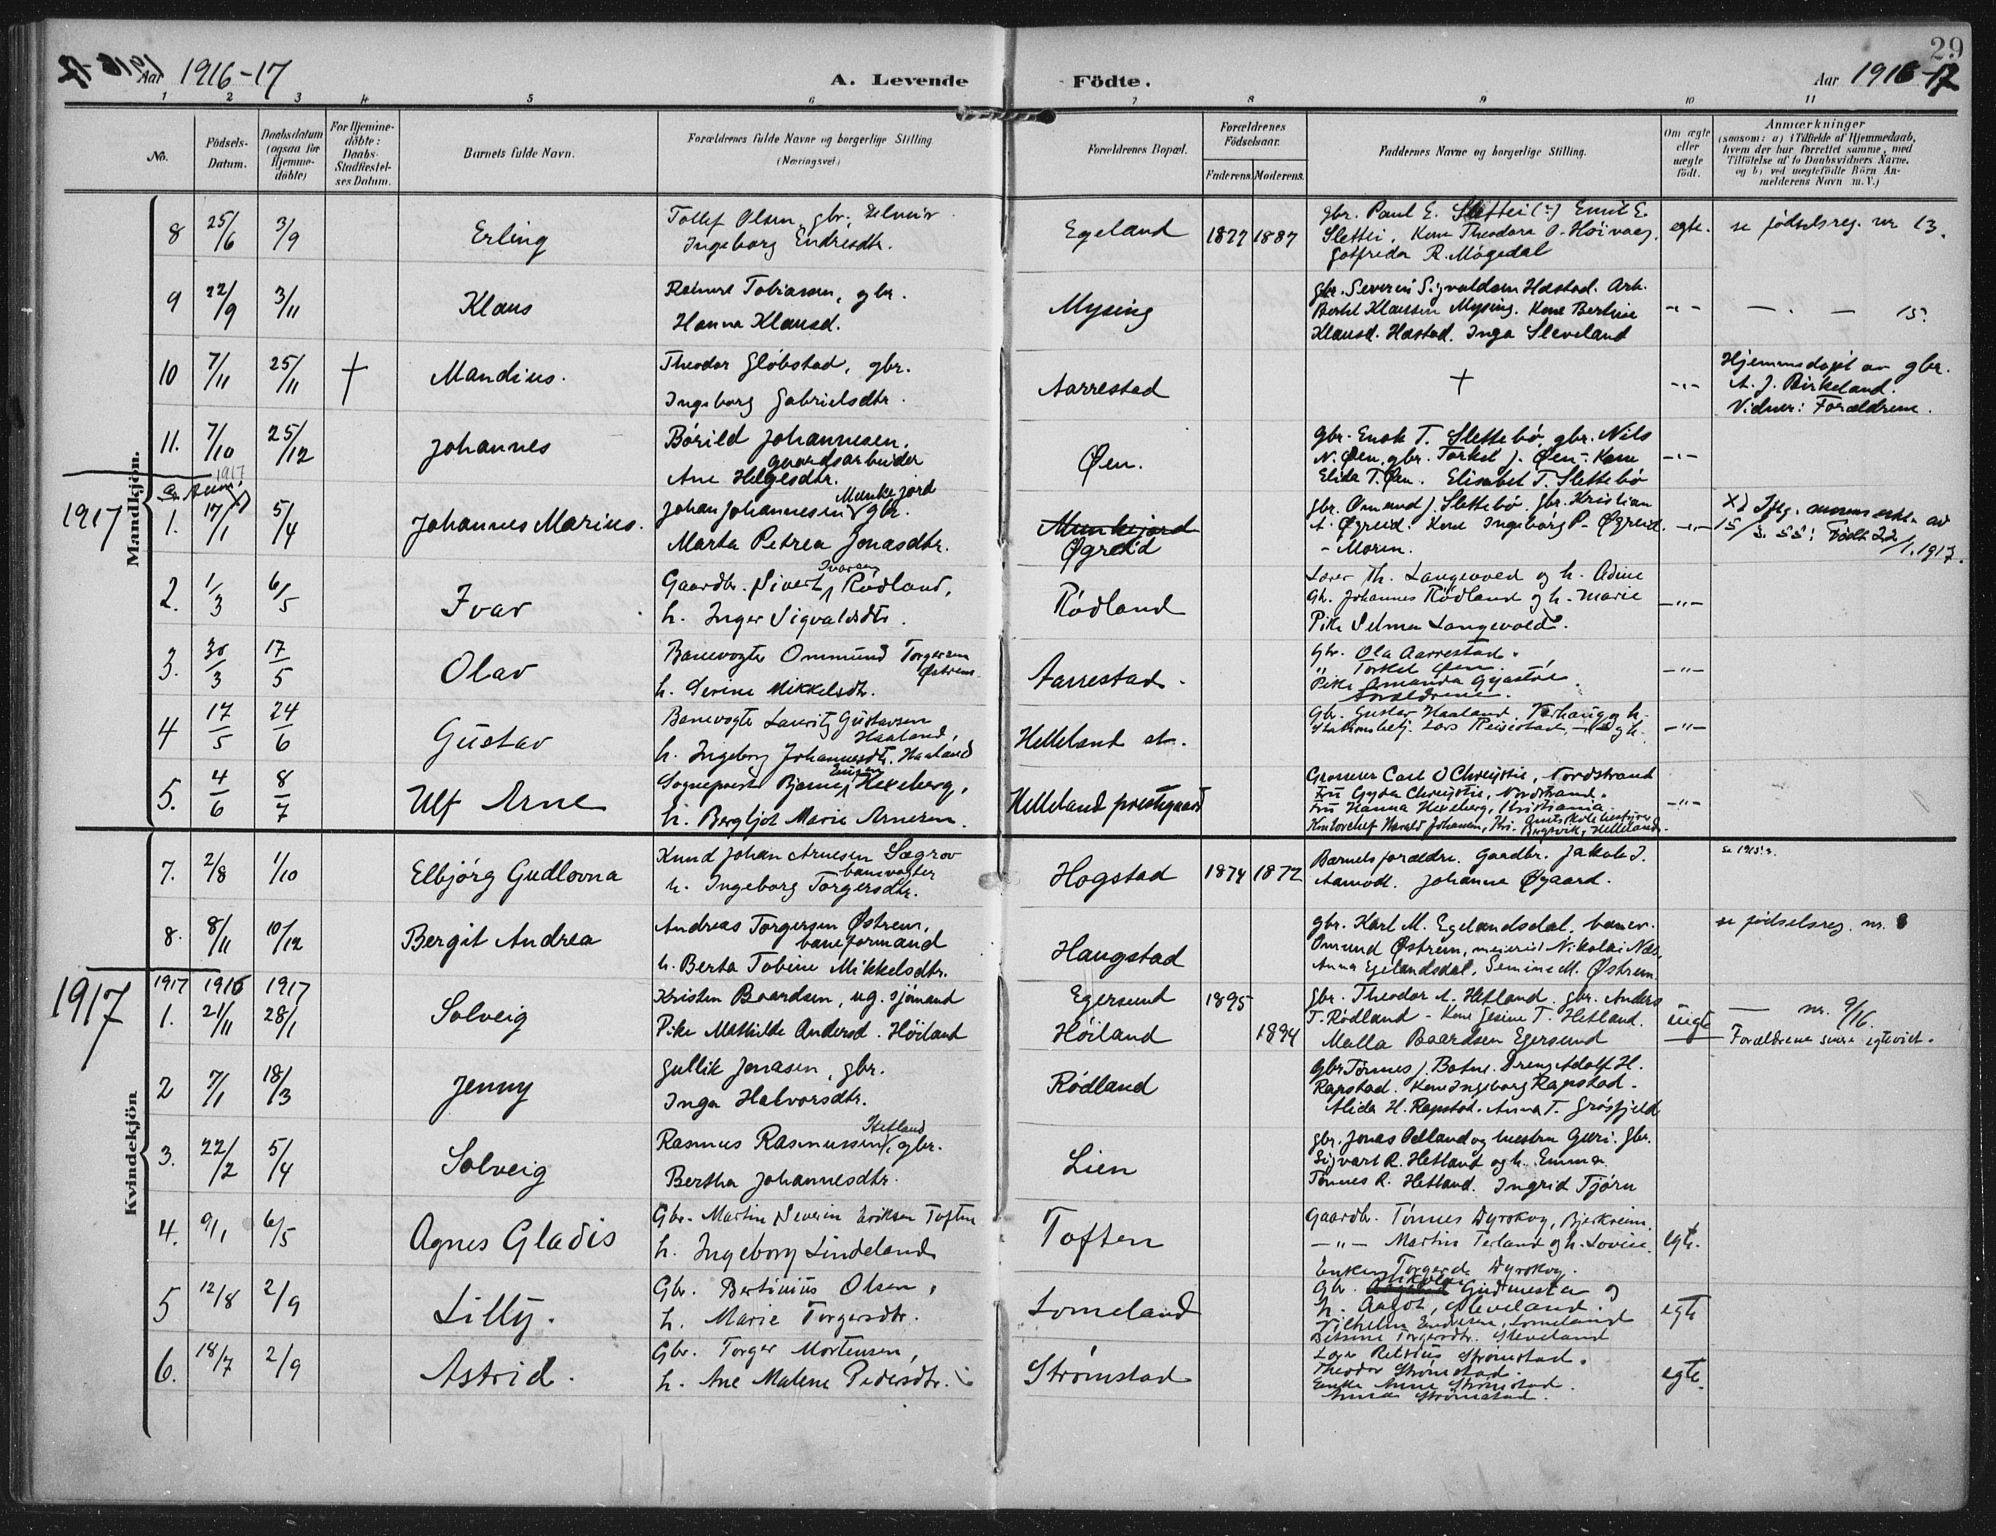 29
Aar 1916-17
A. Levende Födte.
Aar 1916-17
1 2 3 4 5 6 7 8 9 10 11
No.
Födsels-Datum.
Daabsdatum (ogsaa for Hjemme-döbte)
For Hjemme-döbte: Daabs-Stadfæstel-ses Datum.
Barnets fulde Navn.
Forældrenes fulde Navne og borgerlige Stilling (Næringsvei)
Forældrenes Bopæl.
Forældrenes Födselsaar.
Faderens. Moderens.
Faddernes Navne og borgerlige Stilling.
Om ægte eller uægte födt.
Anmærkninger
(saasom: a) i Tilfælde af Hjemmedaab, hvem der har forrettet samme, med Tilföielse af to Daabsvidners Navne, og b) ved uægtefödte Börn An-melderens Navn m. V.)
Mandkjön.
8 25/6 3/9 Erling
Tollef Olsen, gbr.
Ingeborg Endresdtr.
Egeland 1877 1887
gbr. Paul E. Slettei (:) Emil E.
Slettei, Kone Theodora O. Höivaag,
Gotfreda R. Mögedal
egte. se födselsreg. nr 13.
9 22/9 3/11 Klaus
Tobiassen, gbr.
Hanna Klausd.
Mysing
gbr. Severin Sigvaldsen Hæstad. Arb.
Bertel Klausen Mysing. Kone Bertine
Klausd. Hæstad. Inga Sleveland
-"- — . — 15.
10 7/11 25/11 † Mandius.
Theodor Gløbstad, gbr.
Ingeborg Gabrielsdtr.
Aarrestad
†
-"-
Hjemmedöpt av gbr.
A. J. Birkeland.
Vidner: Forældrene.
11. 7/10 25/12 Johannes
Børild Johannesen,
gaardsarbeider
Ane Helgesdtr.
Øen.
gbr. Enok T. Slettebö, gbr. Nils
N. Øen, gbr. Torkel J. Øen - Kone
Elida T. Øen. Elisabet T. Slettebö
-"-
1917
1917
1. 17/1 x) 5/4 Johannes Marius.
Johan Johannesen Munkejord gbr.
Marta Petrea Jonasdtr.
Munkejord
Øgreid
gbr. Omund J. Slettebö, gbr. Kristian
A. Øgreid. Kone Ingeborg P. Øgreid
- Moren.
-"-
x) Iflg. av
15/3. 55: Födt 22/1. 1917.
2. 1/3 6/5 Ivar
Gaardbr. Sivert Ivarsen Rødland,
h. Inger Sigvaldsdtr.
Rødland
Lærer Th. Langevold og h. Adine
Gb. Johannes Rødland og h. Marie
Pike Selma Langevold.
-"-
3. 30/3 17/5 Olav
Banevogter Ommund Torgersen
Østrem.
h. Serine Mikkelsdtr.
Aarrestad.
Gbr. Ola Aarrestad.
" Torkel Øen.
Pike Amanda
Forældrene.
-"-
4 17/5 24/6 Gustav
Banevogter Lauritz Gustavsen
Haaland,
h. Ingeborg Johannesdtr. Haaland
Helleland st.
Gbr. Gustav Haaland, Varhaug og h.
Lars
-"-
5. 4/6 8/7 Ulf Arne
Sogneprest Bjarne Hexeberg,
h. Bergljot Marie Arnesen.
Helleland prestegaard
Grosserer Carl O Christie, Nordstrand
Fru Gyda Christie, Nordstrand.
Fru Hanna Hexeberg, Kristiania.
Kontorchef Harald Johansen, Kr.
Helleland.
-"-
Kvindekjön
7. 2/8 1/10 Elbjörg Gudlovna
Knud Johan Arnesen Sægrov
banevogter
h. Ingeborg Torgersdtr.
Hogstad 1874 1872
Barnets forældre. Gaardbr. Jakob I.
Aamodt. Johanna Øgaard.
8. 8/11 10/12 Bergit Andrea
Andreas Torgersen Østrem,
baneformand
h. Berta Tobine Mikkelsdtr.
Haugstad
gbr. Karl M. Egelandsdal, banev.
Omund Østrem, meierist Nikolai Næs,
Anna Egelandsdal, Semine M. Østrem.
se födselsreg. nr. 8
1917
1917 1916 1917
1. 21/11 28/1 Solveig
Kristen Baardsen, ug. sjömand
Pike Mathilde Andersd. Höiland
Egersund 1895
Höiland 1894
gbr. Theodor A. Hetland. gbr. Anders
T. Rødland - Kone Gesine T. Hetland.
Malla Baardsen Egersund
uegte
— nr. 9/16.
Forældrene senere egteviet.
2 7/1 18/3 Jenny
Gullik Jonasen, gbr.
Inga Halvorsdtr.
Rødland
gbr Tönnes J. Botne. Dreng Adolf H.
Rapstad. Kone Ingeborg Rapstad.
Alida H. Rapstad. Anna T. Grösfjeld
3. 22/2 5/4 Solveig
Rasmus Rasmussen Hetland, gbr.
Bertha Johannesdtr.
Lien
gbr. Jonas Odland og hustru Guri. Gbr.
Sigvart R. Hetland og h. Emma.
Tönnes R. Hetland. Ingrid Tjörn
4. 9/1 6/5 Agnes Gladis
Gbr. Martin Severin Eriksen Toften
h. Ingeborg Lindeland
Toften
Gaardb. Tönnes Dyrskog, Bjerkreim.
—"— Martin Terland og h. Lovise.
Enken Torgerd Dyrskog.
egte.
5 12/8 2/9 Lilly.
Gbr. Bertinius Olsen,
h. Marie Torgersdtr.
Lomeland
Gbr. Nikolai Gudmestad og
h. Aagot, Sleveland.
Vilhelm Endresen, Lomeland
Betsine Torgersdtr. Sleveland
egte
6. 18/7 2/9 Astrid.
Gbr. Torger Mortensen,
h. Ane Malene Pedersdtr.
Strømstad
Strømstad.
Theodor Strømstad.
Enke Anne Strømstad.
Strømstad.
egte.